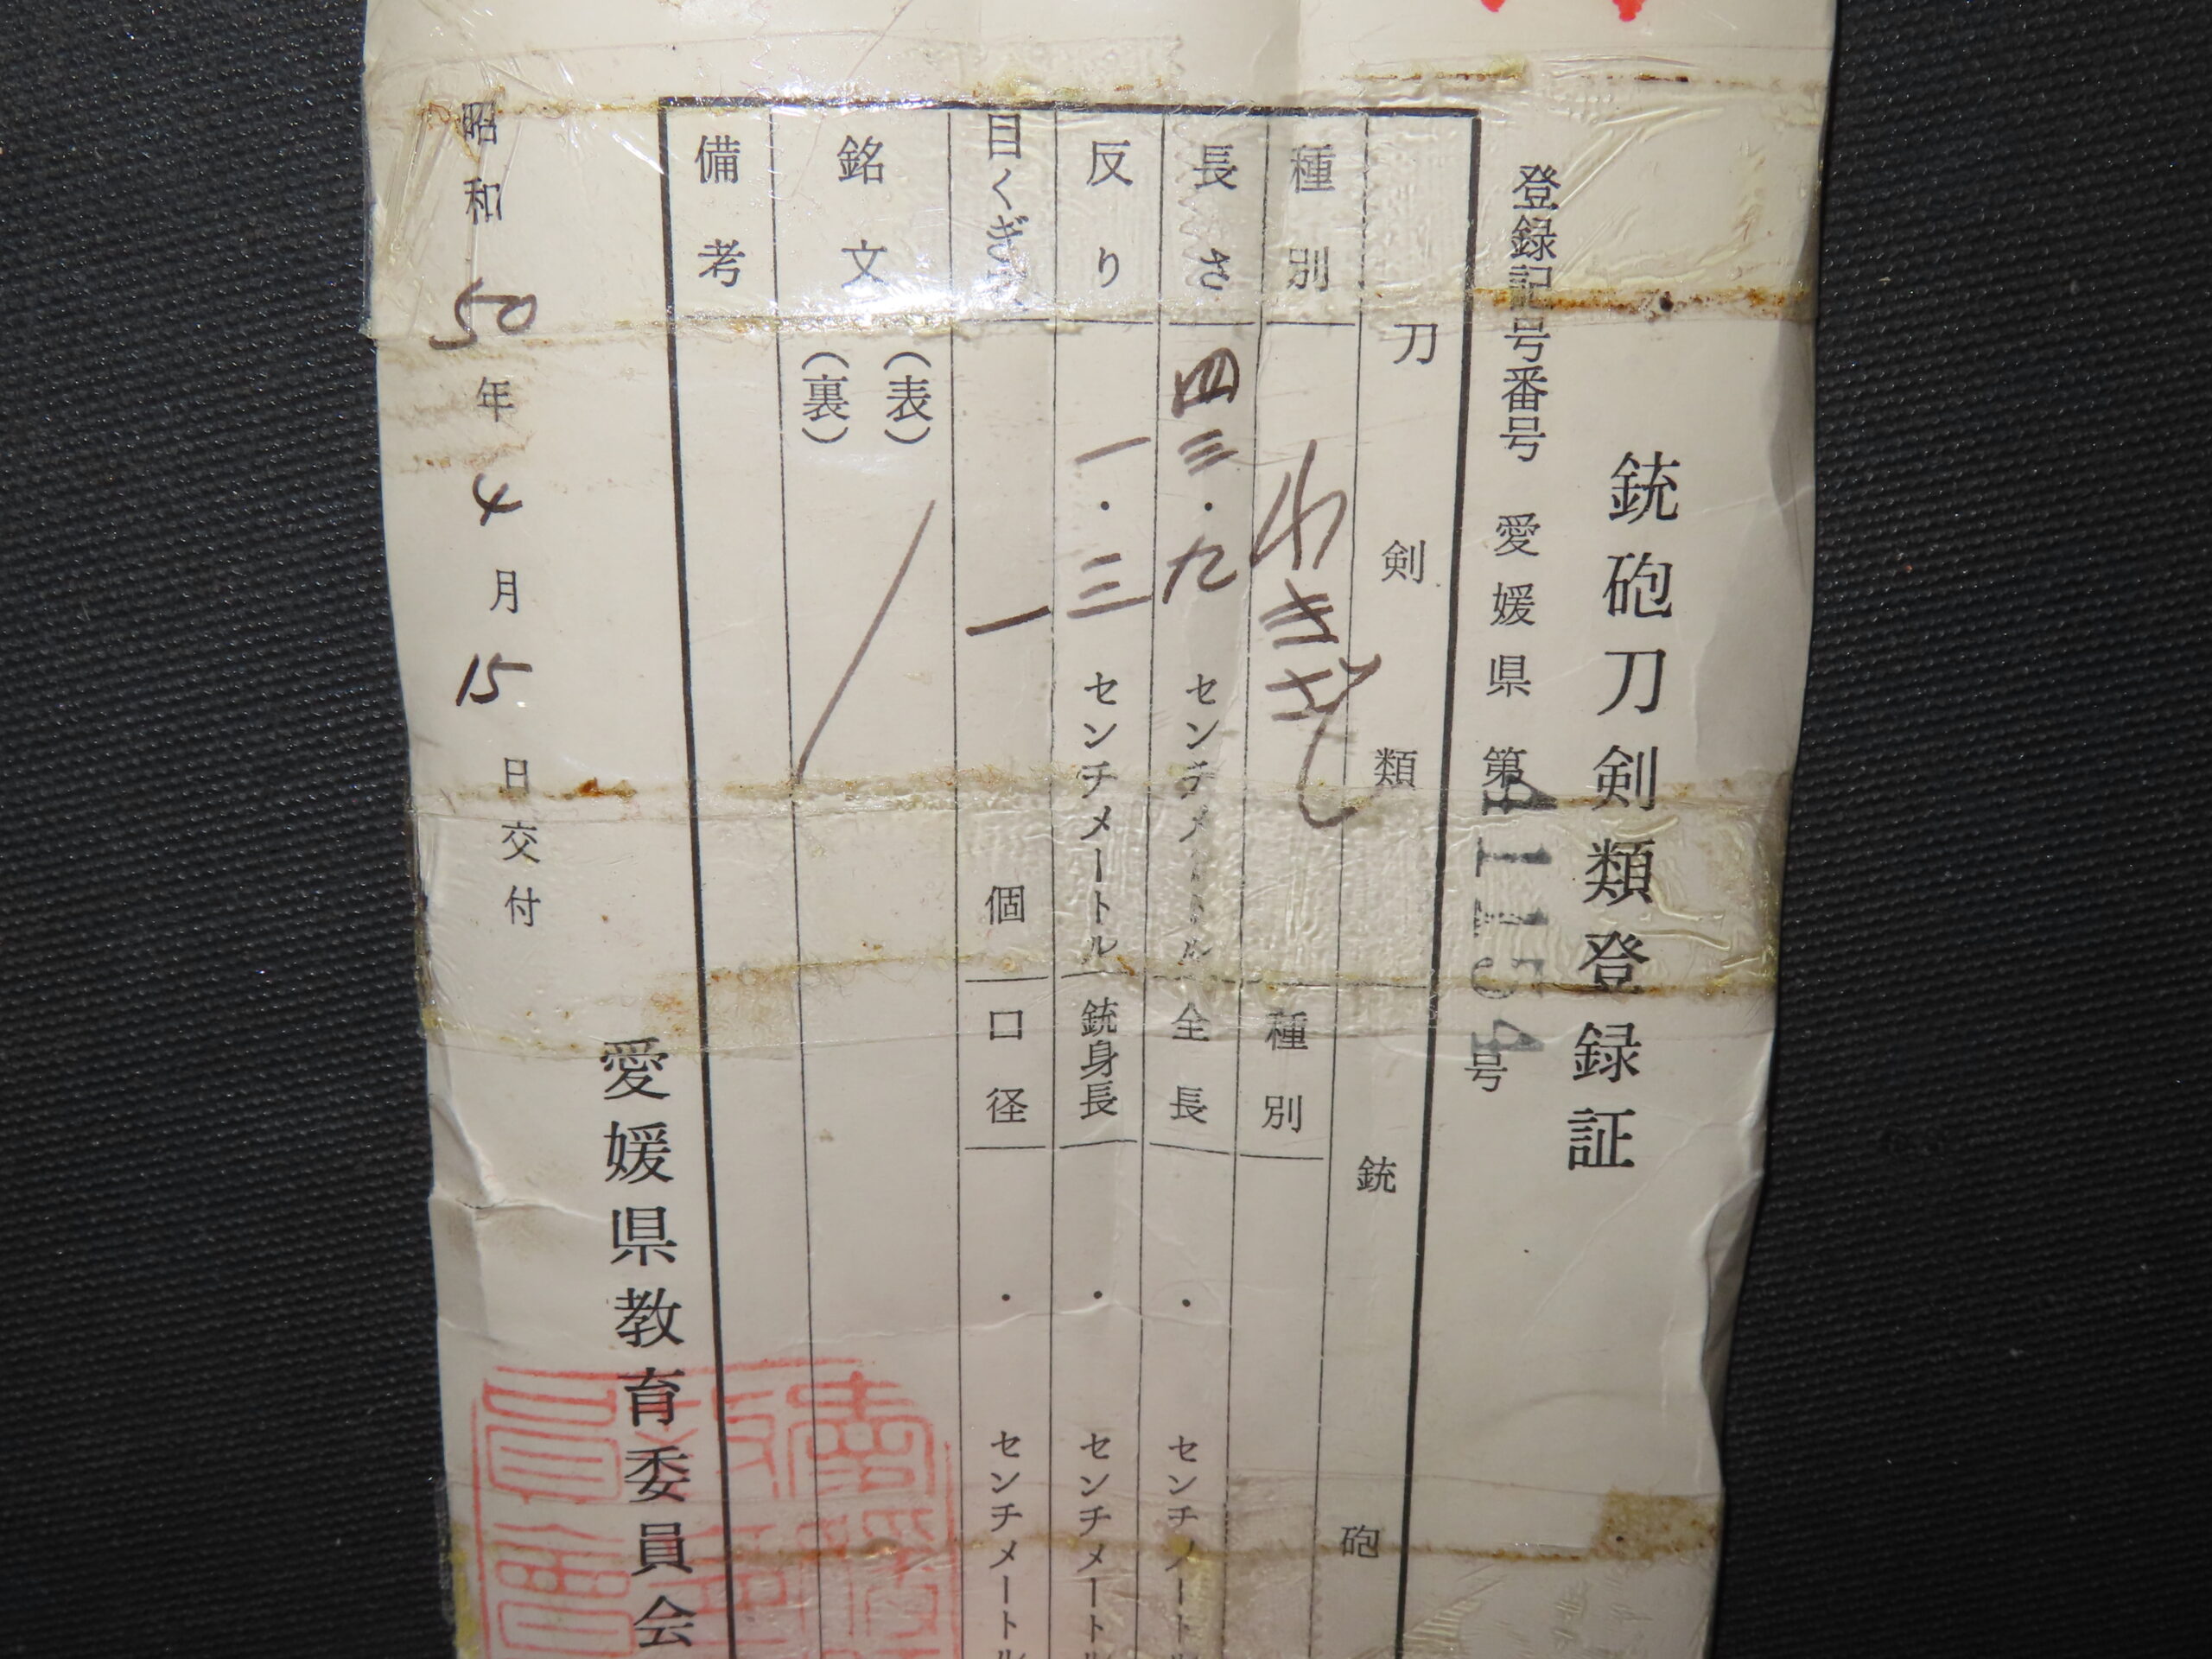 銃砲刀剣類登録証
登録記号番号 愛媛県 第41154号
刀剣類
種別 わきざし
長さ 四三・九 センチメートル
反り 一・三 センチメートル
目くぎ 一 個
銘文 (表)
(裏)
備考
銃砲
種別
全長 ・ センチメートル
銃身長 ・ センチメートル
口径 ・ センチメートル
昭和50年4月15日交付
愛媛県教育委員会